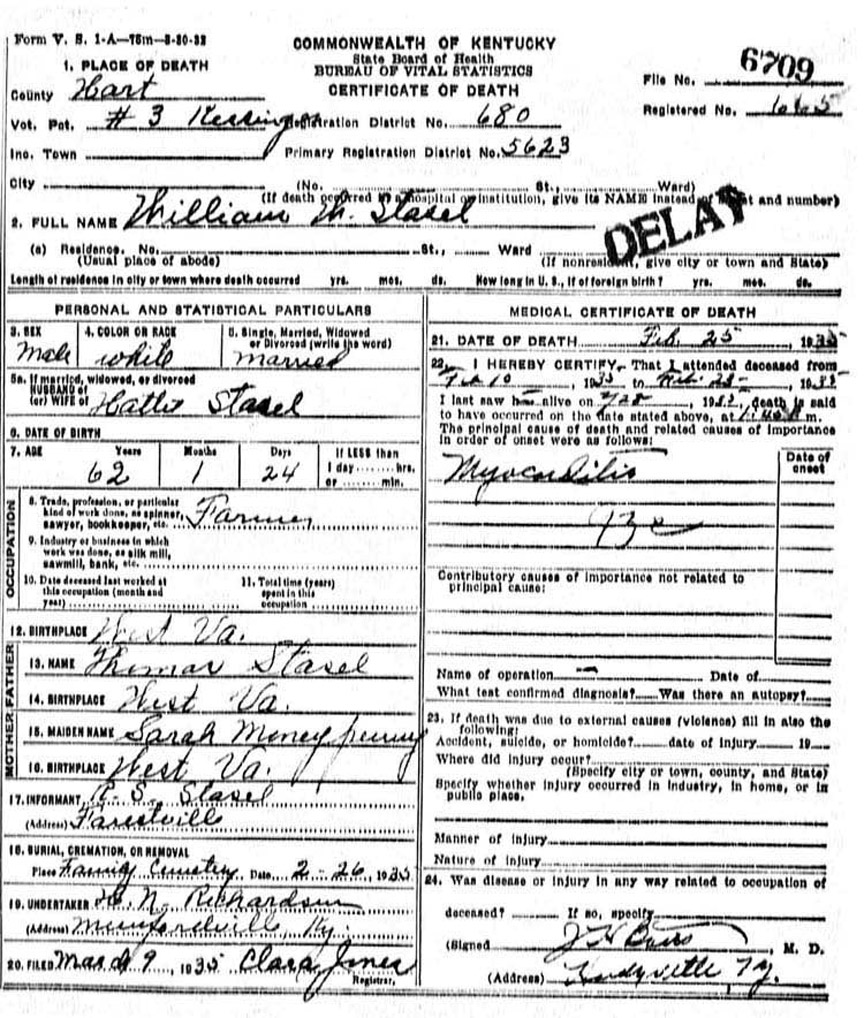 Form V. S. 1-A—75m—8-30-32
COMMONWEALTH OF KENTUCKY
State Board of Health
BUREAU OF VITAL STATISTICS
CERTIFICATE OF DEATH
File No. 6709
Registered No.
1. PLACE OF DEATH
County Hart
Vot. Pct. #3 Registration District No. 680
Inc. Town Primary Registration District No. 5623
City (No. St., Ward)
(If death occurred in a hospital or institution, give its NAME instead of street and number)
2. FULL NAME William M. Stasel
DELAY
(a) Residence. No. St., Ward
(Usual place of abode) (If nonresident, give city or town and State)
Length of residence in city or town where death occurred yrs. mos. ds. How long in U. S., if of foreign birth? yrs. mos. ds.
PERSONAL AND STATISTICAL PARTICULARS
3. SEX 4. COLOR OR RACE 5. Single, Married, Widowed
or Divorced (write the word)
Male white married
5a. If married, widowed, or divorced
HUSBAND of
(or) WIFE of Hattie Stasel
6. DATE OF BIRTH
7. AGE Years Months Days If LESS than
1 day hrs.
or min.
62 1 24
OCCUPATION
8. Trade, profession, or particular
kind of work done, as spinner,
sawyer, bookkeeper, etc. Farmer
9. Industry or business in which
work was done, as silk mill,
sawmill, bank, etc.
10. Date deceased last worked at
this occupation (month and
year)
11. Total time (years)
spent in this
occupation
12. BIRTHPLACE West Va.
FATHER
13. NAME Thomas Stasel
14. BIRTHPLACE West Va.
MOTHER
15. MAIDEN NAME Sarah Moneypenny
16. BIRTHPLACE West Va.
17. INFORMANT Stasel
(Address)
18. BURIAL, CREMATION, OR REMOVAL
Place Family Cemetery Date 2-26, 1935
19. UNDERTAKER N. Richardson
(Address) Munfordville, Ky.
20. FILED March 9, 1935 Clara Jones
Registrar.
MEDICAL CERTIFICATE OF DEATH
21. DATE OF DEATH Feb. 25 1935
22. I HEREBY CERTIFY, That I attended deceased from
Feb 10, 1935 to Feb. 1935
I last saw h alive on 193 , death is said
to have occurred on the date stated above, at m.
The principal cause of death and related causes of importance
in order of onset were as follows:
Date of
onset
Myocarditis
93c
Contributory causes of importance not related to
principal cause:
Name of operation Date of
What test confirmed diagnosis? Was there an autopsy?
23. If death was due to external causes (violence) fill in also the
following:
Accident, suicide, or homicide? date of injury 19
Where did injury occur?
(Specify city or town, county, and State)
Specify whether injury occurred in industry, in home, or in
public place.
Manner of injury
Nature of injury
24. Was disease or injury in any way related to occupation of
deceased? If so, specify
(Signed) M. D.
(Address) Hardyville, Ky.